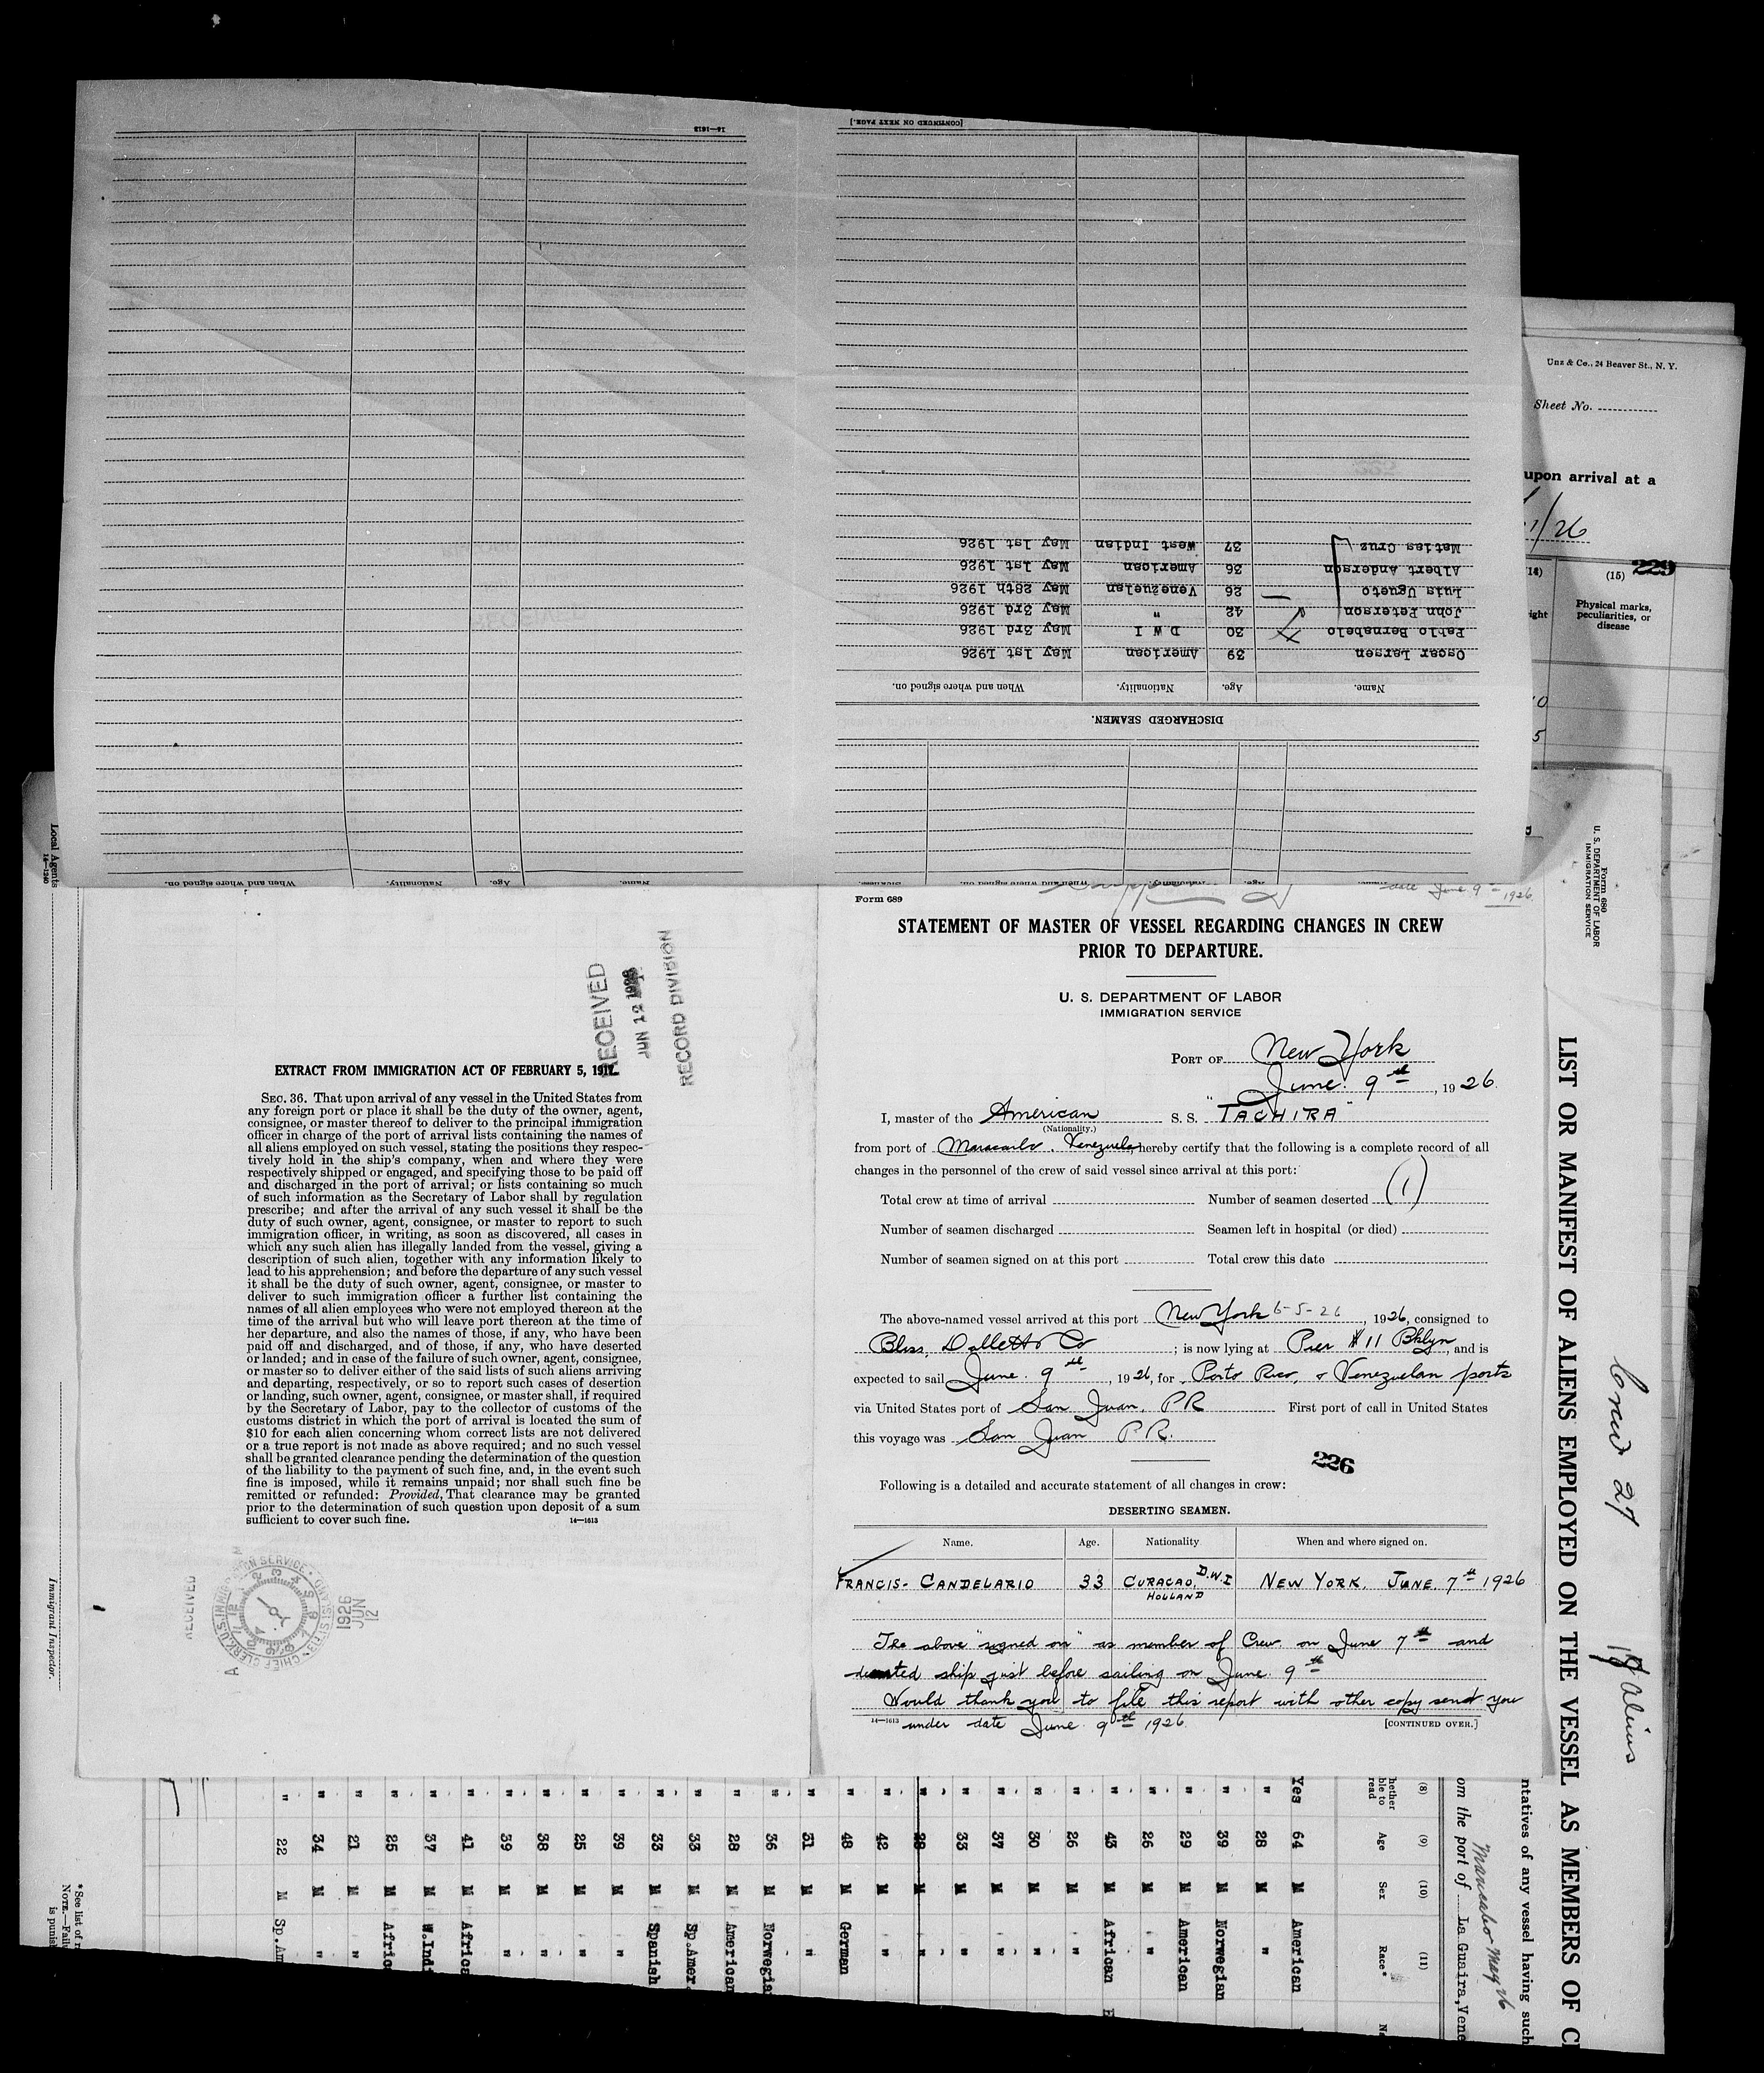 14—1613
[CONTINUED ON NEXT PAGE.]
Matias Cruz 37 West Indian May 1st 1926
Albert Anderson 36 American May 1st 1926
Luis Ugueto 26 Venezuelan May 28th 1926
John Peterson 42 " May 3rd 1926
Pablo Bernabelo 30 D W I May 3rd 1926
Oscar Larsen 39 American May 1st 1926
Name. Age. Nationality. When and where signed on.
DISCHARGED SEAMEN.
Name. Age. Nationality. When and where signed on.
Name. Age. Nationality. When and where signed on.
date June 9th 1926
Unz & Co., 24 Beaver St., N. Y.
Sheet No.
upon arrival at a
1/26
229
(14) (15)
Physical marks,
peculiarities, or
disease
Form 689
STATEMENT OF MASTER OF VESSEL REGARDING CHANGES IN CREW
PRIOR TO DEPARTURE.
U. S. DEPARTMENT OF LABOR
IMMIGRATION SERVICE
PORT OF New York
June 9th, 1926.
I, master of the American S. S. "TACHIRA"
(Nationality.)
from port of Maracaibo. Venezuela hereby certify that the following is a complete record of all
changes in the personnel of the crew of said vessel since arrival at this port:
Total crew at time of arrival Number of seamen deserted (1)
Number of seamen discharged Seamen left in hospital (or died)
Number of seamen signed on at this port Total crew this date
The above-named vessel arrived at this port New York 6-5-26, 1926, consigned to
Bliss, Dallett & Co; is now lying at Pier #11 Bklyn, and is
expected to sail June 9th, 1926, for Porto Rico, & Venezuelan ports
via United States port of San Juan, PR First port of call in United States
this voyage was San Juan P.R.
226
Following is a detailed and accurate statement of all changes in crew:
DESERTING SEAMEN.
Name. Age. Nationality When and where signed on.
FRANCIS - CANDELARIO 33 CURACAO, D.W.I HOLLAND NEW YORK. JUNE 7th 1926
The above "signed on" as member of Crew on June 7th and
deserted ship just before sailing on June 9th
Would thank you to file this report with other copy send you
under date June 9th 1926.
14—1613
[CONTINUED OVER.]
RECEIVED
JUN 12 1926
RECORD DIVISION
EXTRACT FROM IMMIGRATION ACT OF FEBRUARY 5, 1917.
SEC. 36. That upon arrival of any vessel in the United States from
any foreign port or place it shall be the duty of the owner, agent,
consignee, or master thereof to deliver to the principal immigration
officer in charge of the port of arrival lists containing the names of
all aliens employed on such vessel, stating the positions they respec-
tively hold in the ship's company, when and where they were
respectively shipped or engaged, and specifying those to be paid off
and discharged in the port of arrival; or lists containing so much
of such information as the Secretary of Labor shall by regulation
prescribe; and after the arrival of any such vessel it shall be the
duty of such owner, agent, consignee, or master to report to such
immigration officer, in writing, as soon as discovered, all cases in
which any such alien has illegally landed from the vessel, giving a
description of such alien, together with any information likely to
lead to his apprehension; and before the departure of any such vessel
it shall be the duty of such owner, agent, consignee, or master to
deliver to such immigration officer a further list containing the
names of all alien employees who were not employed thereon at the
time of the arrival but who will leave port thereon at the time of
her departure, and also the names of those, if any, who have been
paid off and discharged, and of those, if any, who have deserted
or landed; and in case of the failure of such owner, agent, consignee,
or master so to deliver either of the said lists of such aliens arriving
and departing, respectively, or so to report such cases of desertion
or landing, such owner, agent, consignee, or master shall, if required
by the Secretary of Labor, pay to the collector of customs of the
customs district in which the port of arrival is located the sum of
$10 for each alien concerning whom correct lists are not delivered
or a true report is not made as above required; and no such vessel
shall be granted clearance pending the determination of the question
of the liability to the payment of such fine, and, in the event such
fine is imposed, while it remains unpaid; nor shall such fine be
remitted or refunded: Provided, That clearance may be granted
prior to the determination of such question upon deposit of a sum
sufficient to cover such fine.
14—1613
RECEIVED
1926
JUN
12
Local Agents
14—1240
Immigrant Inspector.
Form 680
U. S. DEPARTMENT OF LABOR
IMMIGRATION SERVICE
LIST OR MANIFEST OF ALIENS EMPLOYED ON THE VESSEL AS MEMBERS OF C
Crew 27
19 Aliens
ntatives of any vessel having such
om the port of La Guaira, Vene
Maracaibo May 26
(8) (9) (10) (11)
hether
ble to
read
Age Sex Race*
Yes 64 M American
" 28 M "
" 39 M Norwegian
" 29 M American
" 26 M "
" 43 M African
" 26 M "
" 30 M "
" 37 M "
" 33 M "
" 28 M "
" 42 M "
" 48 M German
" 31 M "
" 36 M Norwegia
" 28 M American
" 33 M Sp.Amer.
" 33 M Spanish
" 39 M "
" 25 M "
" 38 M "
" 39 M "
" 41 M Africa
" 37 M W.Indi
" 25 M Africa
" 21 M "
" 34 M "
" 22 M Sp.Am
*See list of r
NOTE.—Failu
is punish